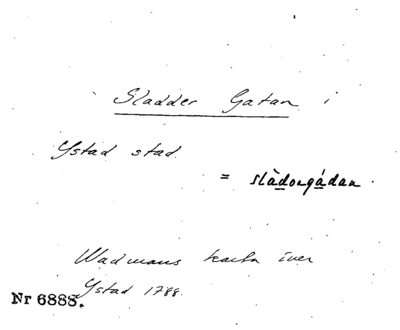 Sladder Gatan i
Ystad stad
= slàdongádan.
Wadmans karta över
Ystad 1788.
Nr 6888.